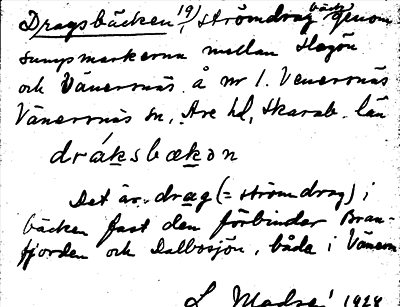 Dragsbäcken 19), strömdrag bäck genom
sumpmarkerna mellan Hagön
och Vänersnäs å nr 1. Venersnäs
Vänersnäs sn, Åse hd, Skarab. län
dráksbækən
Det är drag (= strömdrag) i
bäcken fast den förbinder Bran-
fjorden och Dalbosjön, båda i Vänern
L. Modée 1928